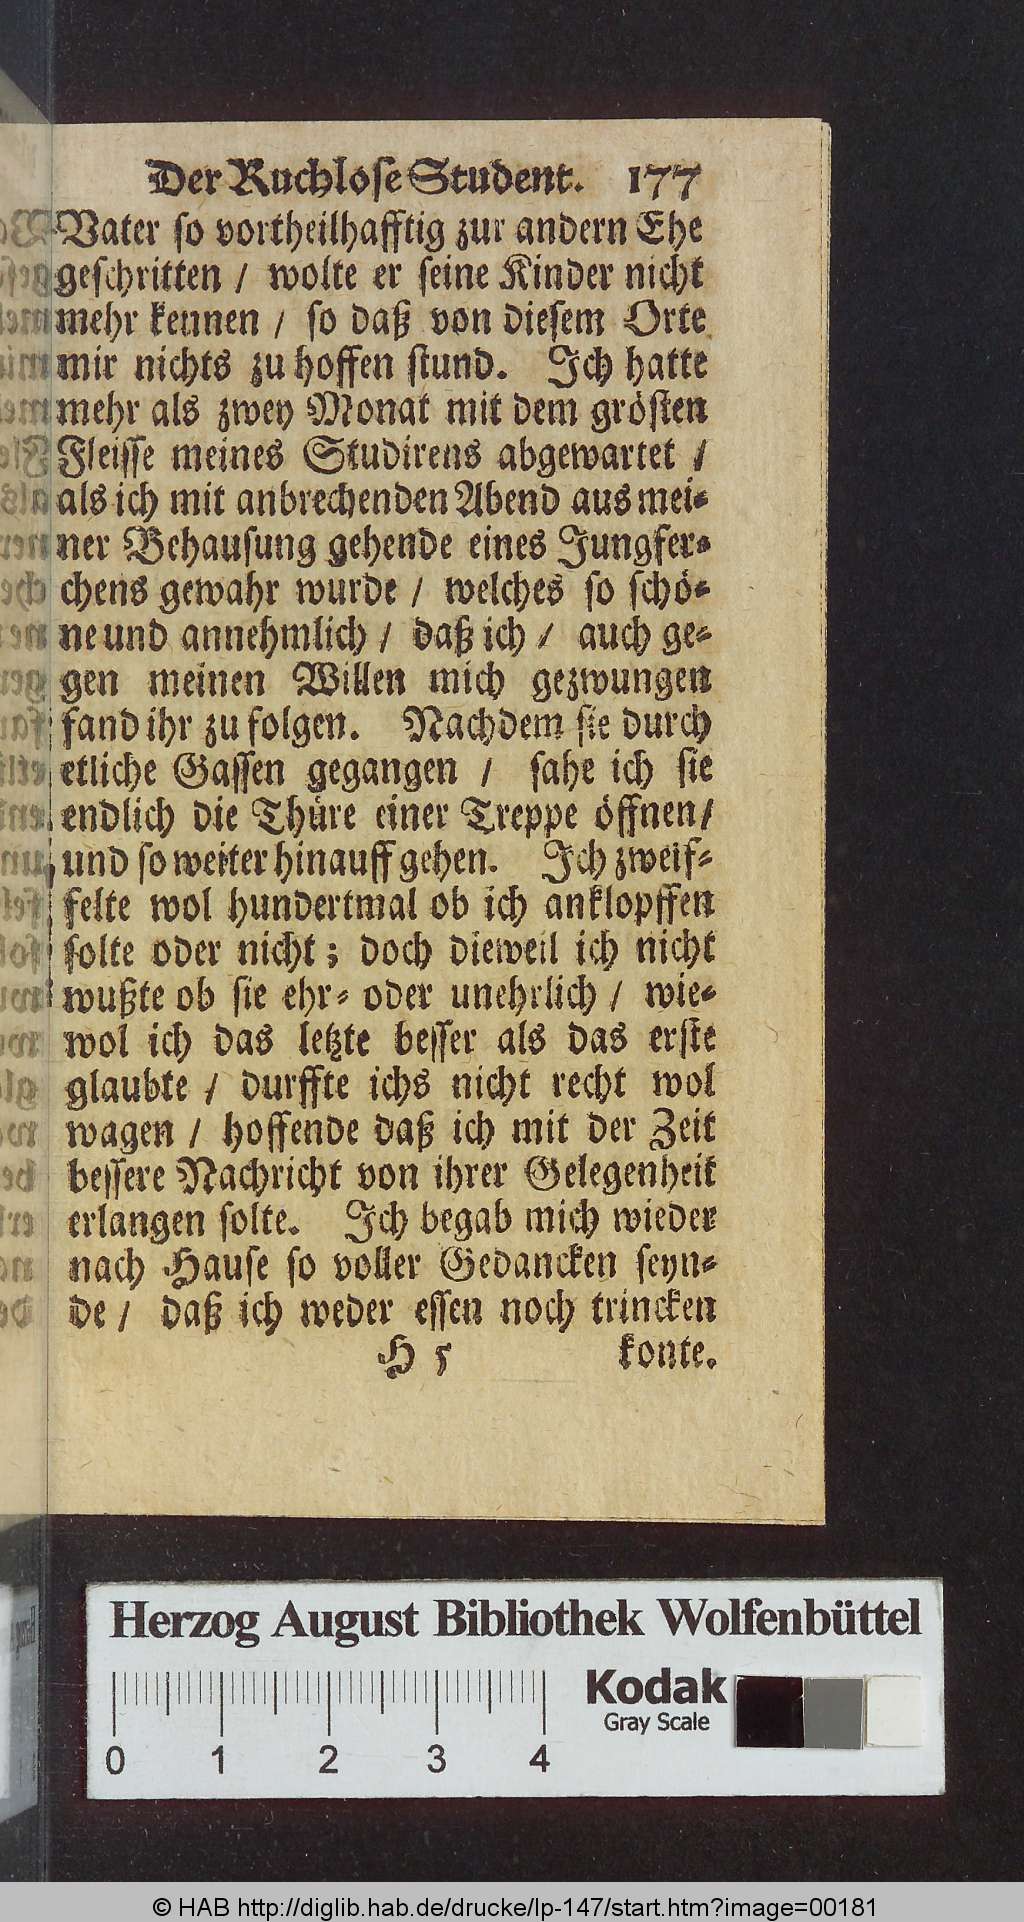 Der Ruchlose Student. 177
Vater so vortheilhafftig zur andern Ehe
geschritten / wolte er seine Kinder nicht
mehr kennen / so daß von diesem Orte
mir nichts zu hoffen stund. Ich hatte
mehr als zwey Monat mit dem grösten
Fleisse meines Studirens abgewartet /
als ich mit anbrechenden Abend aus mei-
ner Behausung gehende eines Jungfer-
chens gewahr wurde / welches so schö-
ne und annehmlich / daß ich / auch ge-
gen meinen Willen mich gezwungen
fand ihr zu folgen. Nachdem sie durch
etliche Gassen gegangen / sahe ich sie
endlich die Thüre einer Treppe öffnen /
und so weiter hinauff gehen. Ich zweif-
felte wol hundertmal ob ich anklopffen
solte oder nicht; doch dieweil ich nicht
wußte ob sie ehr- oder unehrlich / wie-
wol ich das letzte besser als das erste
glaubte / durffte ichs nicht recht wol
wagen / hoffende daß ich mit der Zeit
bessere Nachricht von ihrer Gelegenheit
erlangen solte. Ich begab mich wieder
nach Hause so voller Gedancken seyn-
de / daß ich weder essen noch trincken
H 5 konte.
Herzog August Bibliothek Wolfenbüttel
Kodak
Gray Scale
0 1 2 3 4
© HAB http://diglib.hab.de/drucke/lp-147/start.htm?image=00181